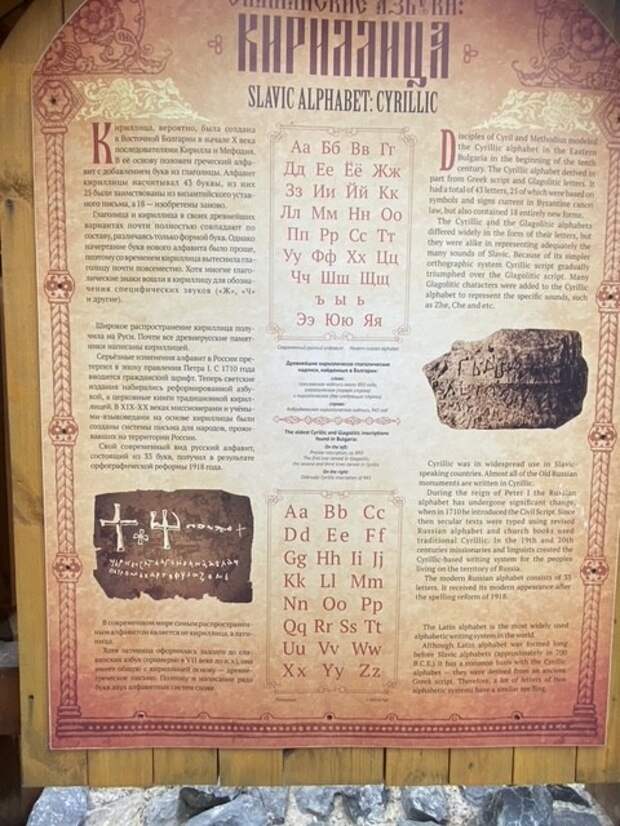 СЛАВЯНСКИЕ АЗБУКИ:
КИРИЛЛИЦА
SLAVIC ALPHABET: CYRILLIC
Кириллица, вероятно, была создана
в Восточной Болгарии в начале X века
последователями Кирилла и Мефодия.
В её основу положен греческий алфа-
вит с добавлением букв из глаголицы. Алфавит
кириллицы насчитывал 43 буквы, из них
25 были заимствованы из византийского устав-
ного письма, а 18 — изобретены заново.
Глаголица и кириллица в своих древнейших
вариантах почти полностью совпадают по
составу, различаясь только формой букв. Однако
начертание букв нового алфавита было проще,
поэтому со временем кириллица вытеснила гла-
голицу почти повсеместно. Хотя многие глаго-
лические знаки вошли в кириллицу для обозна-
чения специфических звуков («Ж», «Ч»
и другие).
Широкое распространение кириллица полу-
чила на Руси. Почти все древнерусские памят-
ники написаны кириллицей.
Серьёзные изменения алфавит в России пре-
терпел в эпоху правления Петра I. С 1710 года
вводится гражданский шрифт. Теперь светские
издания набирались реформированной азбу-
кой, а церковные книги традиционной кирил-
лицей. В XIX-XX веках миссионерами и учёны-
ми-языковедами на основе кириллицы были
созданы системы письма для народов, прожи-
вавших на территории России.
Свой современный вид русский алфавит,
состоящий из 33 букв, получил в результате
орфографической реформы 1918 года.
В современном мире самым распространён-
ным алфавитом является не кириллица, а лати-
ница.
Хотя латиница оформилась задолго до сла-
вянских азбук (примерно в VII веке до н.э.), она
имеет общую с кириллицей основу — древне-
греческое письмо. Поэтому и написание ряда
букв двух алфавитных систем схоже.
Аа Бб Вв Гг
Дд Ее Ёё Жж
Зз Ии Йй Кк
Лл Мм Нн Оо
Пп Рр Сс Тт
Уу Фф Хх Цц
Чч Шш Щщ
ъ ы ь
Ээ Юю Яя
Современный русский алфавит Modern russian alphabet
Древнейшие кириллические и глаголические
надписи, найденные в Болгарии:
слева:
справа:
The oldest Cyrillic and Glagolitic inscriptions
found in Bulgaria:
On the left:
the second and third lines carved in Cyrillic
On the right:
Aa Bb Cc
Dd Ee Ff
Gg Hh Ii Jj
Kk Ll Mm
Nn Oo Pp
Qq Rr Ss Tt
Uu Vv Ww
Xx Yy Zz
Disciples of Cyril and Methodius modeled
the Cyrillic alphabet in the Eastern
Bulgaria in the beginning of the tenth
century. The Cyrillic alphabet derived in
part from Greek script and Glagolitic letters. It
had a total of 43 letters, 25 of which were based on
symbols and signs current in Byzantine canon
law, but also contained 18 entirely new forms.
The Cyrillic and the Glagolitic alphabets
differed widely in the form of their letters, but
they were alike in representing adequately the
many sounds of Slavic. Because of its simpler
orthographic system Cyrillic script gradually
triumphed over the Glagolitic script. Many
Glagolitic characters were added to the Cyrillic
alphabet to represent the specific sounds, such
as Zhe, Che and etc.
Cyrillic was in widespread use in Slavic-
speaking countries. Almost all of the Old Russian
monuments are written in Cyrillic.
During the reign of Peter I the Russian
alphabet has undergone significant change,
when in 1710 he introduced the Civil Script. Since
then secular texts were typed using revised
Russian alphabet and church books used
traditional Cyrillic. In the 19th and 20th
centuries missionaries and linguists created the
Cyrillic-based writing system for the peoples
living on the territory of Russia.
The modern Russian alphabet consists of 33
letters. It received its modern appearance after
the spelling reform of 1918.
The Latin alphabet is the most widely used
alphabetic writing system in the world.
Although Latin alphabet was formed long
before Slavic alphabets (approximately in 700
B.C.E.) it has a common basis with the Cyrillic
alphabet — they were derived from an ancient
Greek script. Therefore, a lot of letters of two
alphabetic systems have a similar spelling.